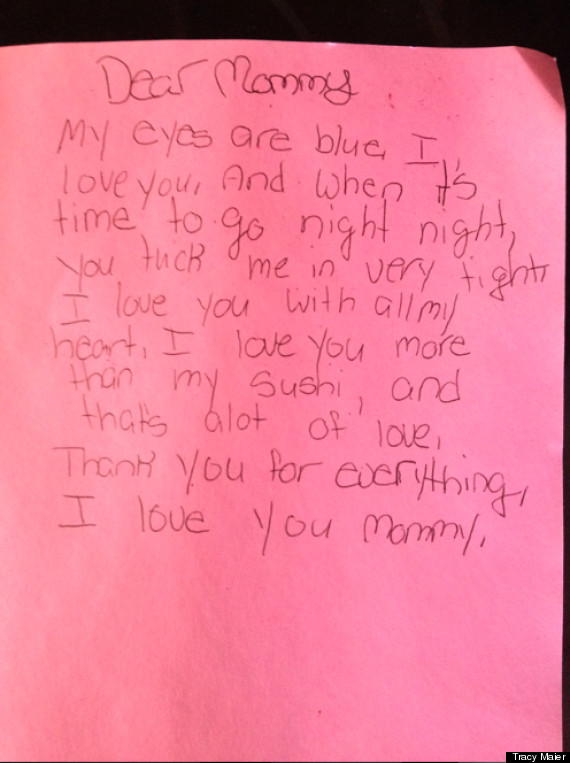 Dear Mommy
My eyes are blue, I
love you, And when it's
time to go night night,
you tuck me in very tight,
I love you with all my
heart, I love you more
than my sushi, and
that's alot of love,
Thank you for everything,
I love you Mommy,
Tracy Maier